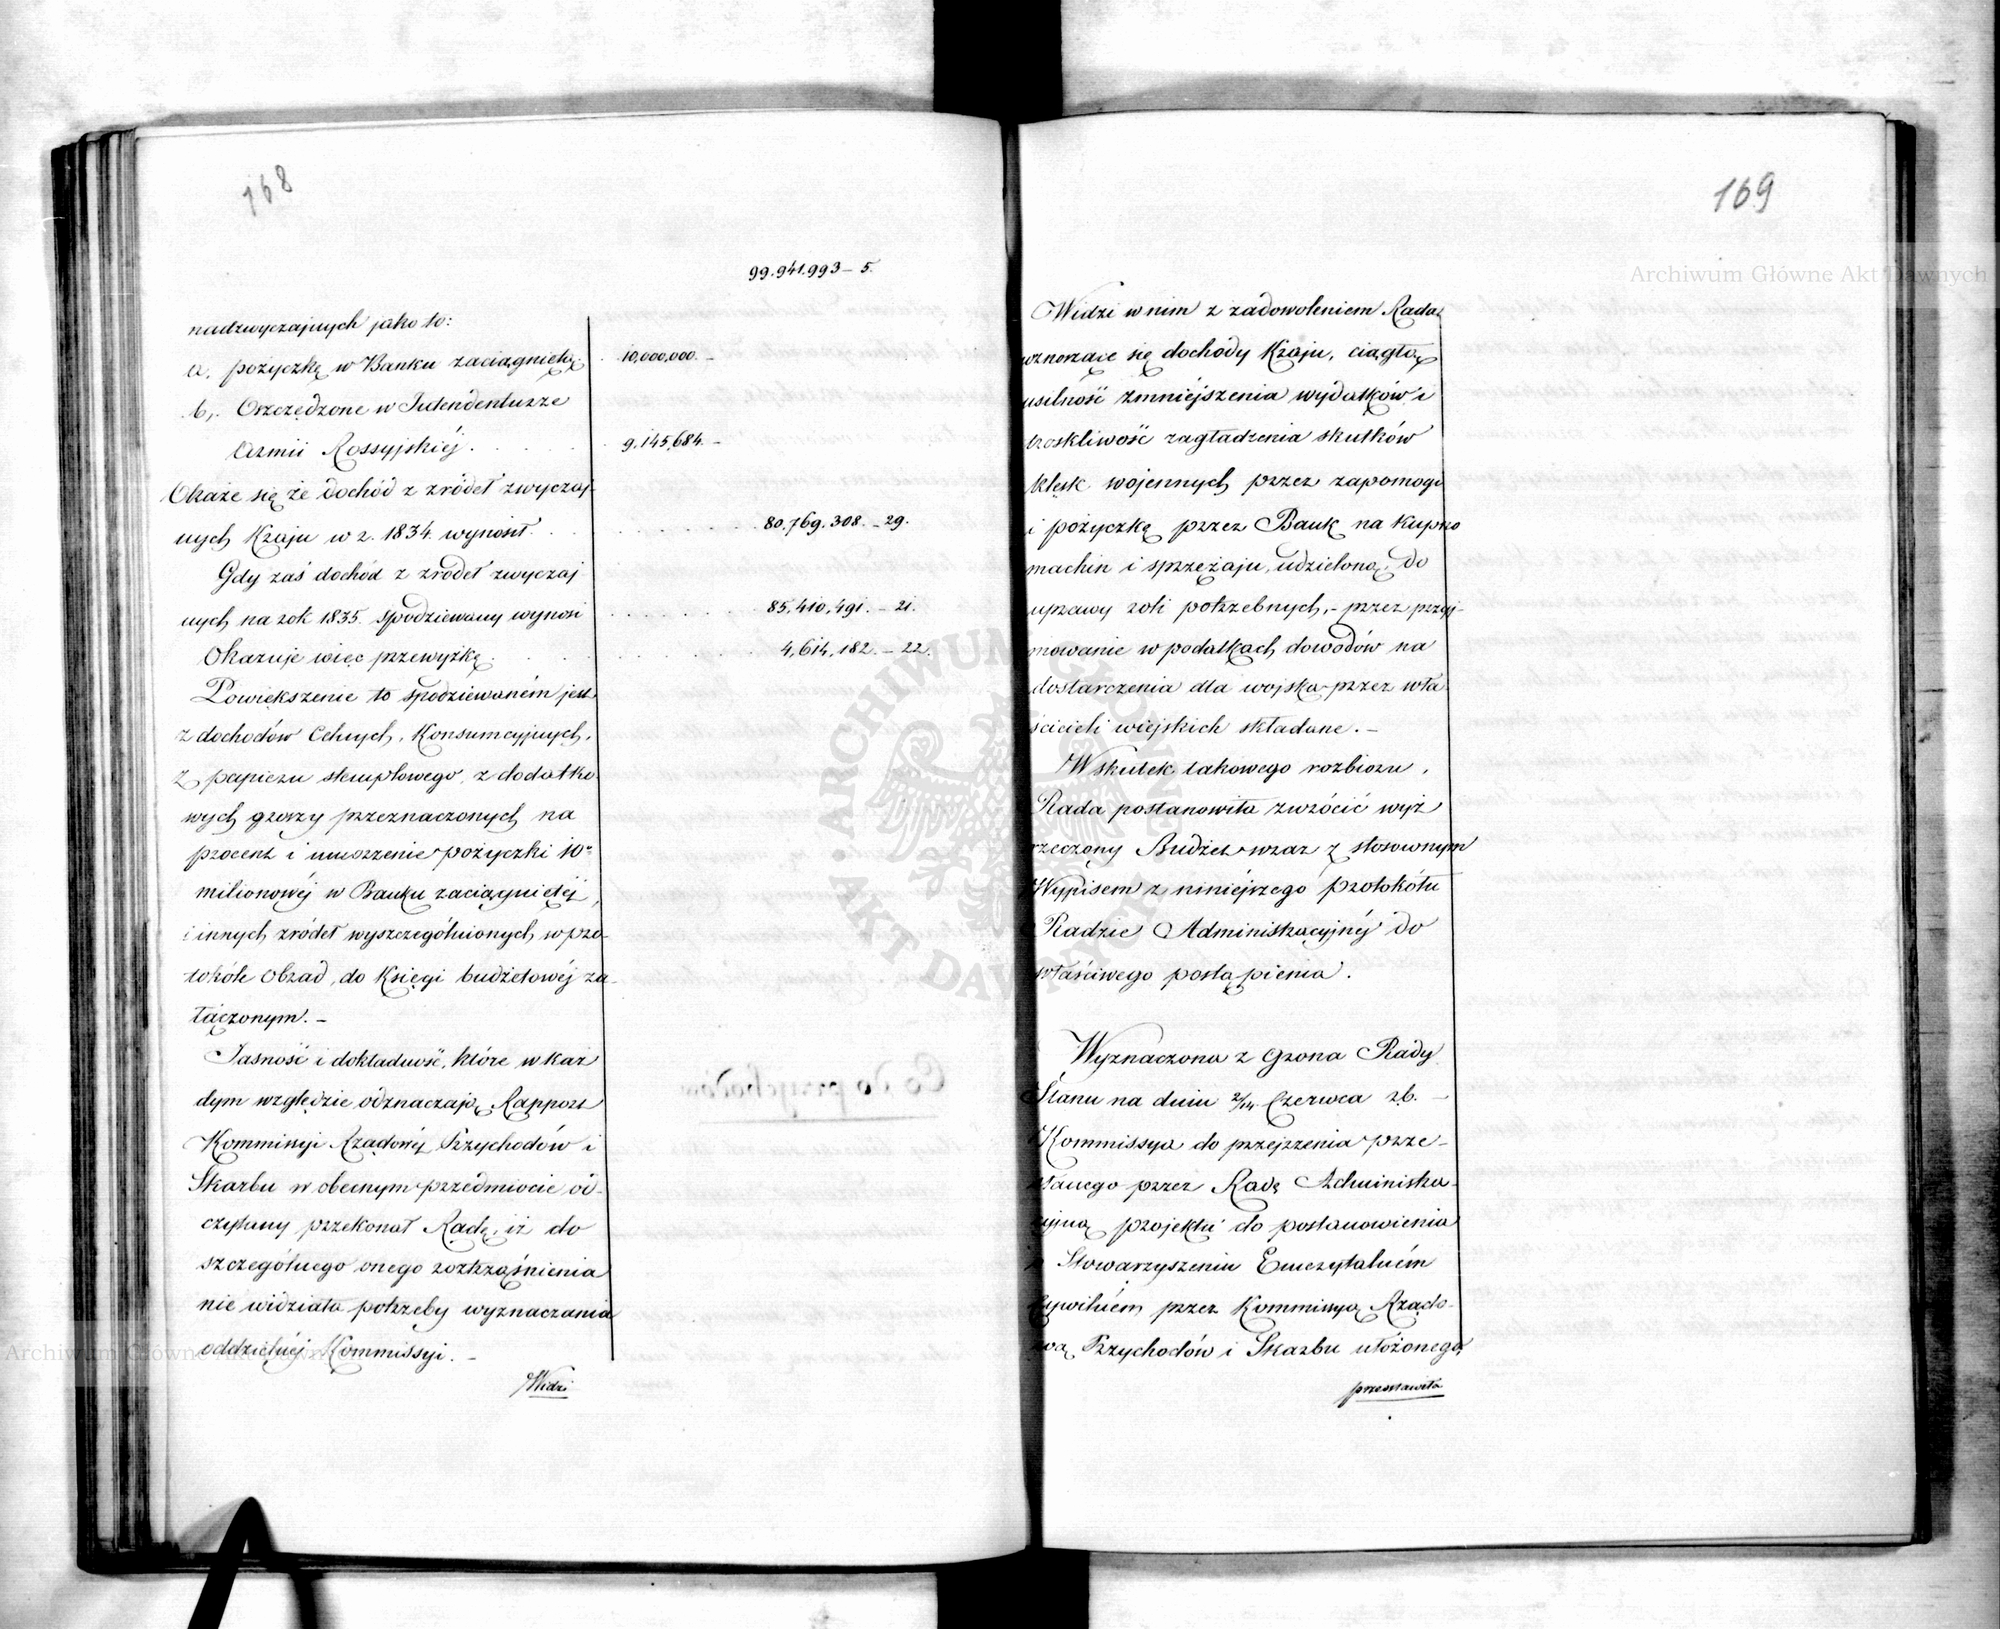 168
99.941.993 – 5.
nadzwyczajnych jako to:
a, pożyczkę w Banku zaciągniętą . 10,000,000. –
b, Oszczędzone w Intendenturze
Armii Rossyjskiéj . . . . 9,145,684. –
Okaże się że dochód z źródeł zwyczaj-
nych Kraju w r. 1834. wynosił . . . . 80,769,308. – 29.
Gdy zaś dochód z źródeł zwyczaj
nych na rok 1835. spodziewany wynosi . . . . 85,410,491. – 21.
Okazuje więc przewyżkę . . . . 4,614,182. – 22.
Powiększenie to spodziewaném jest
z dochodów Celnych, Konsumcyjnych,
z papieru stemplowego, z dodatko
wych groszy przeznaczonych na
procent i umorzenie pożyczki 10
milionowéj w Banku zaciągniętéj,
i innych źródeł wyszczególnionych w pro-
tokóle obrad, do Księgi budżetowéj za-
łączonym. –
Jasność i dokładność, które w każ
dym względzie odznaczają Rapport
Kommissyi Rządowéj Przychodów i
Skarbu w obecnym przedmiocie od-
czytany przekonał Radę, iż do
szczególnego onego roztrząśnienia
nie widziała potrzeby wyznaczania
oddzielnéj Kommissyi. –
Widzi
169
Widzi w nim z zadowoleniem Rada
wznorzące się dochody Kraju, ciągłą
usilność zmniéjszenia wydatków i
troskliwość zagładzenia skutków
klęsk wojennych przez zapomogi
i pożyczkę przez Bank na kupno
machin i sprzężaju, udzieloną, do
uprawy roli potrzebnych, – przez przyj-
mowanie w podatkach dowodów na
dostarczenia dla wojska przez wła
ścicieli wiejskich składane. –
W skutek takowego rozbioru,
Rada postanowiła zwrócić wyż
rzeczony Budżet wraz z stosownym
Wypisem z niniéjszego protokółu
Radzie Administracyjnéj do
właściwego postąpienia.
Wyznaczona z Grona Rady
Stanu na dniu 2/14 Czerwca r.b. –
Kommissya do przejrzenia prze-
słanego przez Radę Administra-
cyjną projektu do postanowienia
o Stowarzyszeniu Emerytalném
Cywilném przez Kommissyą Rządo-
wą Przychodów i Skarbu ułożonego,
przedstawiła